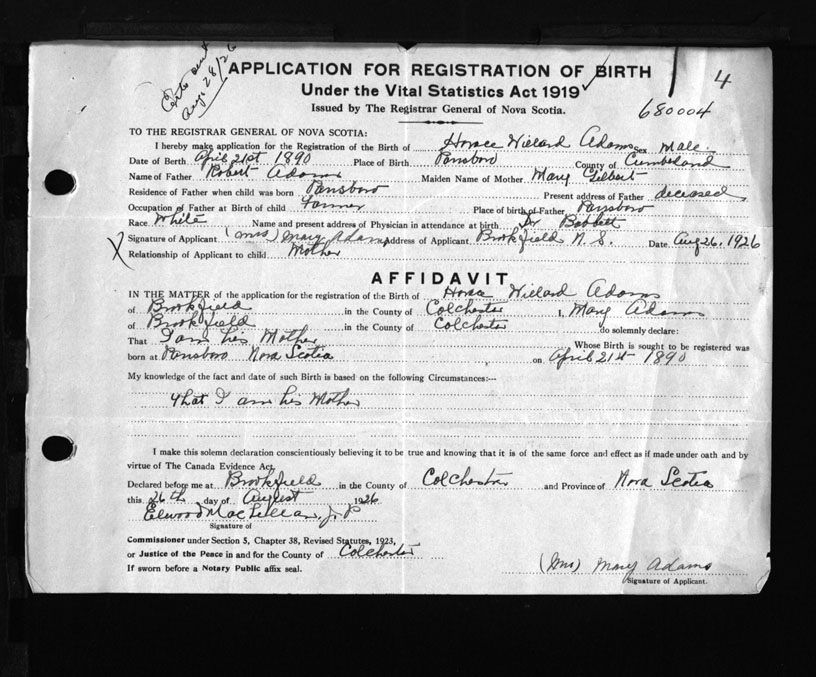 Certs sent
Aug. 28/26
APPLICATION FOR REGISTRATION OF BIRTH
4
Under the Vital Statistics Act 1919
680004
Issued by The Registrar General of Nova Scotia.
TO THE REGISTRAR GENERAL OF NOVA SCOTIA:
I hereby make application for the Registration of the Birth of Horace Willard Adams Sex Male.
Date of Birth April 21st 1890 Place of Birth Parrsboro County of Cumberland
Name of Father Robert Adams Maiden Name of Mother Mary Gilbert
Residence of Father when child was born Parrsboro Present address of Father deceased
Occupation of Father at Birth of child Farmer Place of birth of Father Parrsboro
Race White Name and present address of Physician in attendance at birth Dr Babbett
X Signature of Applicant (Mrs) Mary Adams Address of Applicant Brookfield N.S. Date Aug 26, 1926
Relationship of Applicant to child Mother
AFFIDAVIT
IN THE MATTER of the application for the registration of the Birth of Horace Willard Adams
of Brookfield in the County of Colchester I, Mary Adams
of Brookfield in the County of Colchester do solemnly declare:
That I am his Mother Whose Birth is sought to be registered was
born at Parrsboro Nova Scotia on April 21st 1890
My knowledge of the fact and date of such Birth is based on the following Circumstances:—
that I am his Mother
I make this solemn declaration conscientiously believing it to be true and knowing that it is of the same force and effect as if made under oath and by
virtue of The Canada Evidence Act.
Declared before me at Brookfield in the County of Colchester and Province of Nova Scotia
this 26th day of August 1926
Elwood MacLellan, J.P
Signature of
Commissioner under Section 5, Chapter 38, Revised Statutes, 1923,
or Justice of the Peace in and for the County of Colchester
If sworn before a Notary Public affix seal.
(Mrs) Mary Adams
Signature of Applicant.